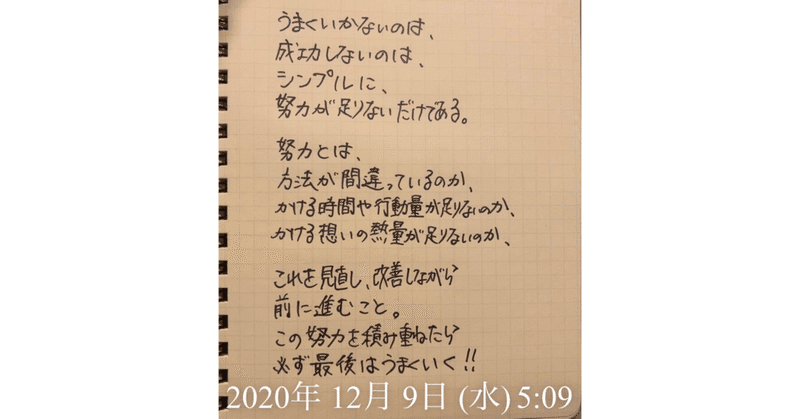 うまくいかないのは、
成功しないのは、
シンプルに、
努力が足りないだけである。
努力とは、
方法が間違っているのか、
かける時間や行動量が足りないのか、
かける想いの熱量が足りないのか、
これを見直し、改善しながら
前に進むこと。
この努力を積み重ねたら
必ず最後はうまくいく!!
2020年 12月 9日 (水) 5:09